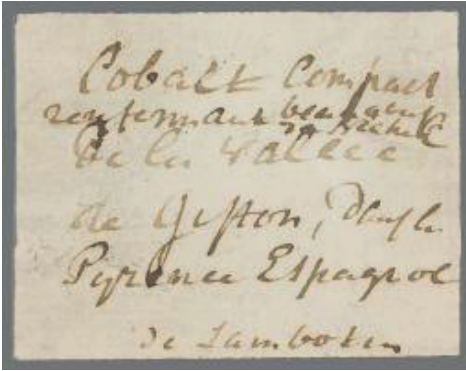 Cobalt Compact
renfermant beaucoup
de Nickel
De la vallée
de Gifton, Dans les
Pyrenée Espagnol
de Lambotin